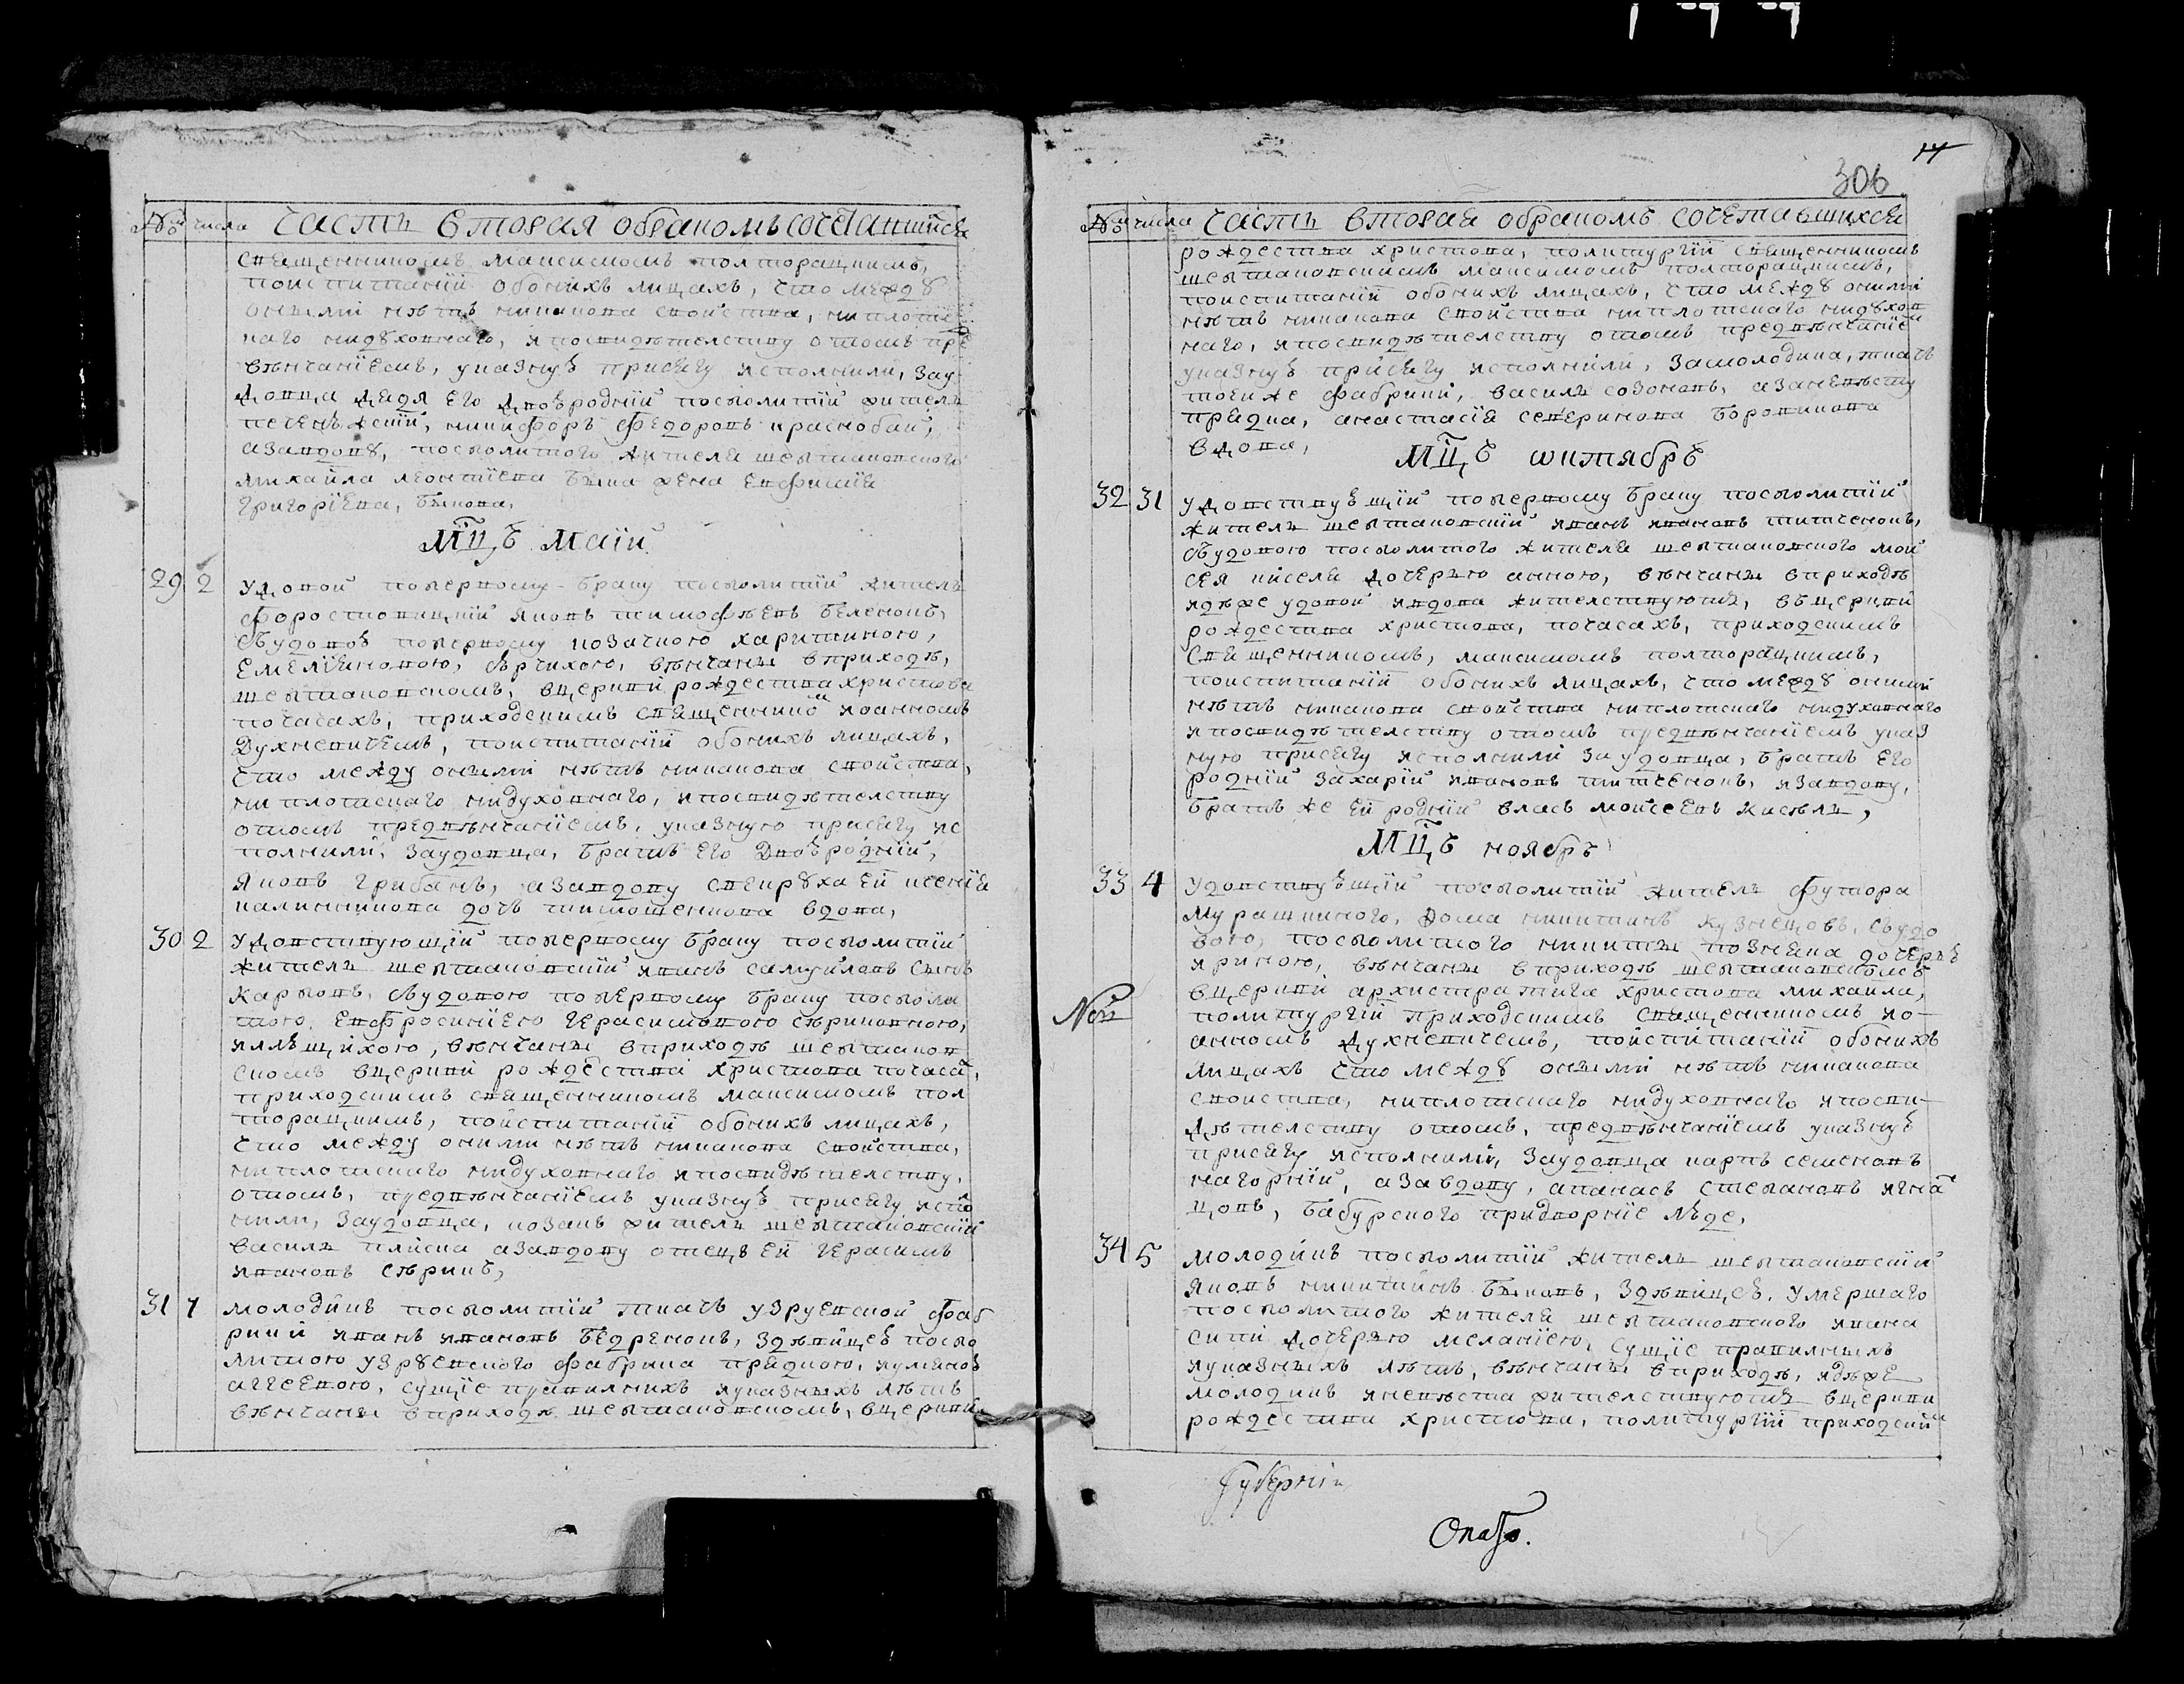 № числа Часть вторая о бракомъ сочетавшихся
священникомъ максимомъ полторацкимъ,
поиспитаніи обоихъ лицахъ, что между
оними нѣтъ никакова свойства, ниплотс
каго нидуховнаго, ипосвидѣтелству отомъ пред
вѣнчаніемъ, указнуѣ присягу исполнили, зау
довца дядя его двоѣродній посполитій житель
никифоръ федоровъ краснобай,
азавдову, посполитого жителя шептаковского
михаила леонтіева бика жена евфимія
григоріева, бикова,
Мцъ маій
29 2 удовой поперwому браку посполитій житель
форостовицкій яковъ тимофѣевъ беленокъ,
совдовоѣ поперwому козачкою харитиною,
емеліяновою, вѣнчаны вприходѣ,
шептаковскомъ, вцеркви рождества христова
почасахъ, приходскимъ священникомъ иоанномъ
Духневичемъ, поиспитаніи обоихъ лицахъ,
что между оними нѣтъ никакова свойства,
ни плотскаго нидуховнаго, ипосвидѣтелству
отомъ предвѣнчаніемъ, указную присягу ис
полнили, заудовца, братъ его двоѣродній,
яковъ грибанъ, азавдову свекруха ей ксенія
калинникова дочь тимошенкова вдова,
30 2 удовствующій поперwому браку посполитій
житель шептаковскій иванъ самуиловъ синъ
карповъ, совдовою поперwому браку поспола
тою евфросиніею герасимовою
вѣнчаны вприходѣ шептаков
скомъ вцеркви рождества христова почаса,
приходскимъ священникомъ максимомъ пол
торацкимъ, поиспитаніи обоихъ лицахъ,
что между оними нѣтъ никакова свойства,
ниплотскаго нидуховнаго ипосвидѣтелству,
отомъ, предвѣнчаніемъ указнуѣ присягу испо
нили, заудовца, козакъ житель шептаковскій
василь пляска азавдову отецъ ей герасимъ
ивановъ сѣрикъ,
31 7 молодикъ посполитій ткачъ узруевской фаб
рики иванъ ивановъ бедренокъ, здѣвицеѣ поспо
литою узруевского фабрика прядкою,
сущіе правилнихъ иуказныхъ лѣтъ
вѣнчаны вприходѣ шептаковскомъ, вцеркви
17
306
№ числа Часть вторая о бракомъ сочетавшихся
рождества христова, политургіи священникомъ
шептаковскимъ максимомъ полторацкимъ,
поиспитаніи обоихъ лицахъ, что между оними
нѣтъ никакова свойства ниплотскаго нидухов
наго, ипосвидѣтелству отомъ предвѣнчаніем
указнуѣ присягу исполнили, замолодика, ткачъ
тоейже фабрики, василь созоновъ, азаневѣсту
прядка, анастасія северинова боровикова
вдова,
Мцъ октябрь
32 31 удовствуѣщій поперwому браку посполитій
житель шептаковскій иванъ ивановъ титченокъ,
совдовою посполитого жителя шептаковского мой
сея киселя дочерью анною, вѣнчаны вприходѣ
идѣже удовой ивдова жителствуютъ, въцеркви
рождества христова, почасахъ, приходскимъ
священникомъ, максимомъ полторацкимъ,
поиспитаніи обоихъ лицахъ, что между оними
нѣтъ никакова свойства ниплотскаго нидуховнаго
ипосвидѣтелству отомъ предвѣнчаніемъ указ
ную присягу исполнили заудовца, братъ его
родній захарій ивановъ титченокъ, изавдову,
братъ же ей родній власъ мойсеевъ кисѣль,
Мцъ ноябрь
33 4 удовствуѣщій посполитій житель футора
мурашкиного, фома никитинъ кузнецовъ, совдо
вою, посполитого никиты дочерьѣ
ириною, вѣнчаны вприходѣ шептаковскомъ
вцеркви архистратига христова михаила,
политургіи приходскимъ священникомъ ио-
анномъ духневичемъ, поиспитаніи обоихъ
лицахъ что между оными нѣтъ никакова
свойства, ниплотскаго нидуховнаго ипосви-
дѣтелству отомъ, предвѣнчаніемъ указнуѣ
присягу исполнили, заудовца карпъ семеновъ
нагорній, азавдову, апанасъ степановъ игна
цовъ, бабурского придворніе лѣде,
34 5 молодикъ посполитій житель шептаковскій
яковъ никитинъ биковъ, здѣвицеѣ, умершаго
посполитого жителя шептаковского ивана
дочерью меланіею, сущіе правилныхъ
иуказныхъ лѣтъ, вѣнчаны вприходѣ, идѣже
молодикъ иневѣста жителствуютъ вцеркви
рождества христова, политургіи приходскимъ
Губерніи